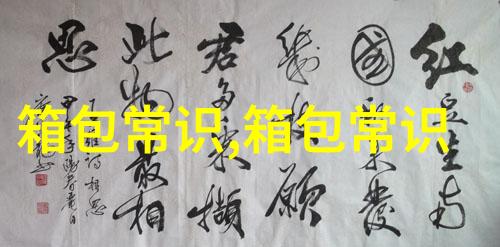 箱包常识,箱包常识
红豆生南
國春来發
幾枝愿
君多采撷
此物最相
思